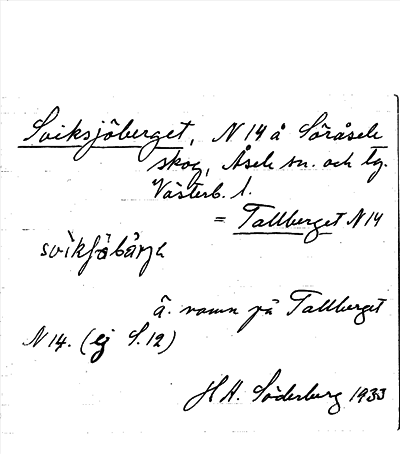 Sviksjöberget, N 14 å Söråsele
skog, Åsele sn. och tg.
Västerb. l.
= Tallberget N 14
svìkʃöbärjɛ
ä. namn på Tallberget
N 14. (ej S. 12)
H A. Söderberg 1933